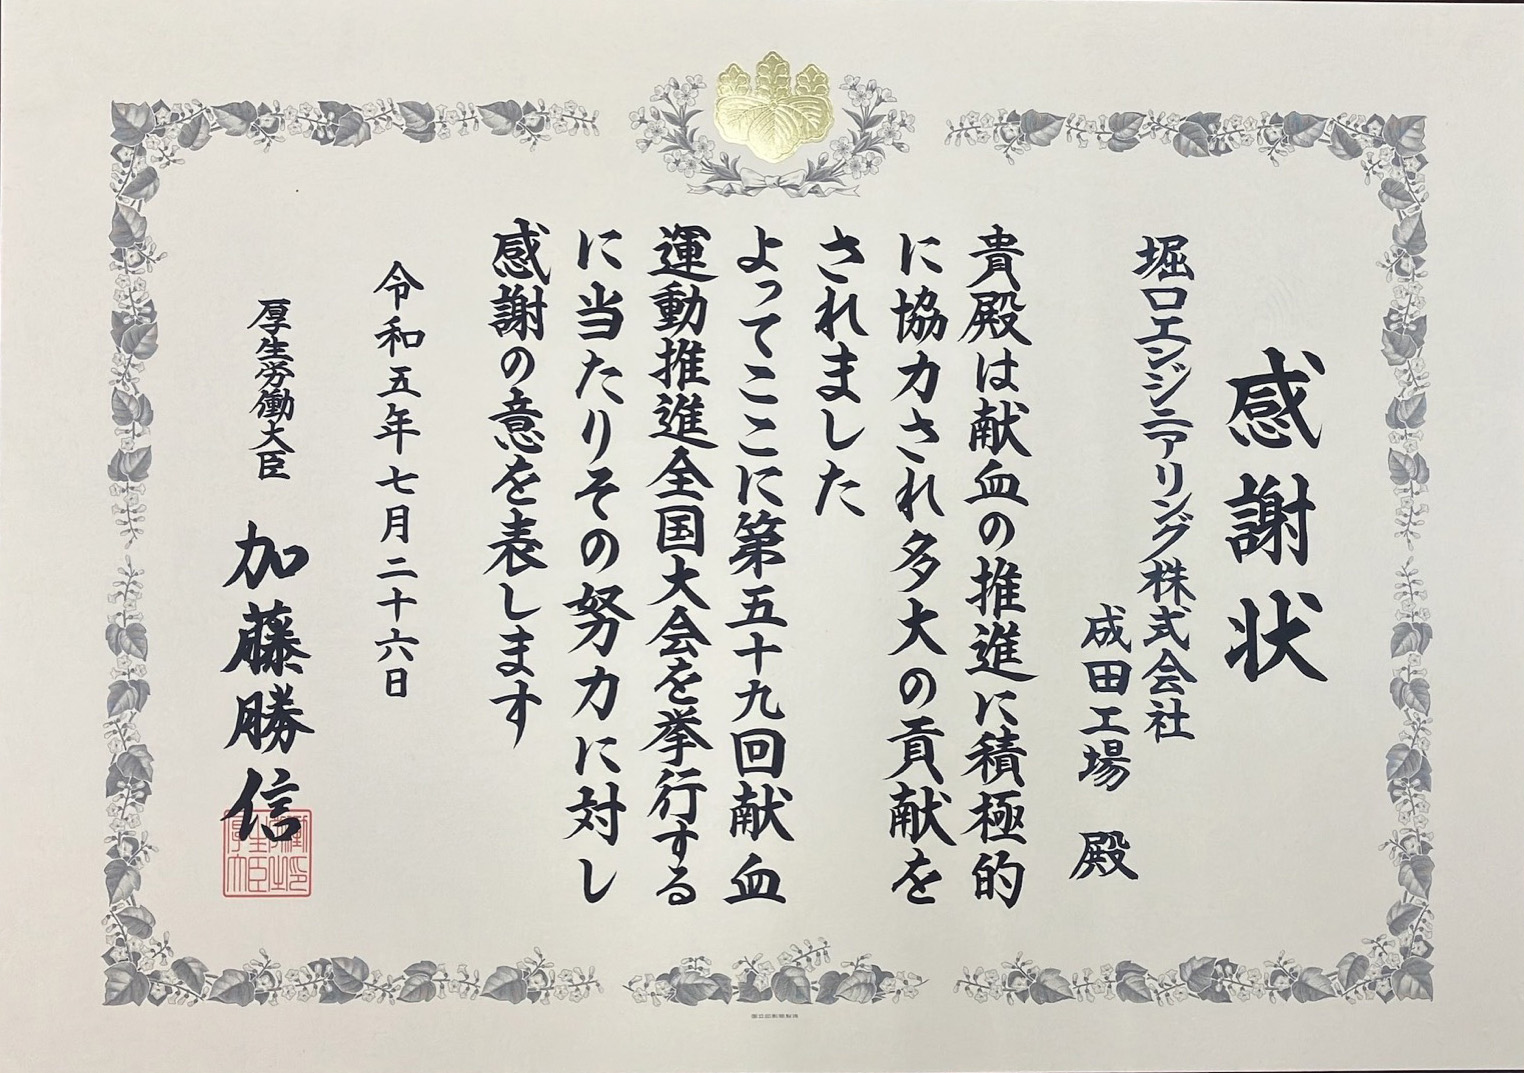 感謝状
堀口エンジニアリング株式会社
成田工場 殿
貴殿は献血の推進に積極的
に協力され多大の貢献を
されました
よってここに第五十九回献血
運動推進全国大会を挙行する
に当たりその努力に対し
感謝の意を表します
令和五年七月二十六日
厚生労働大臣 加藤勝信